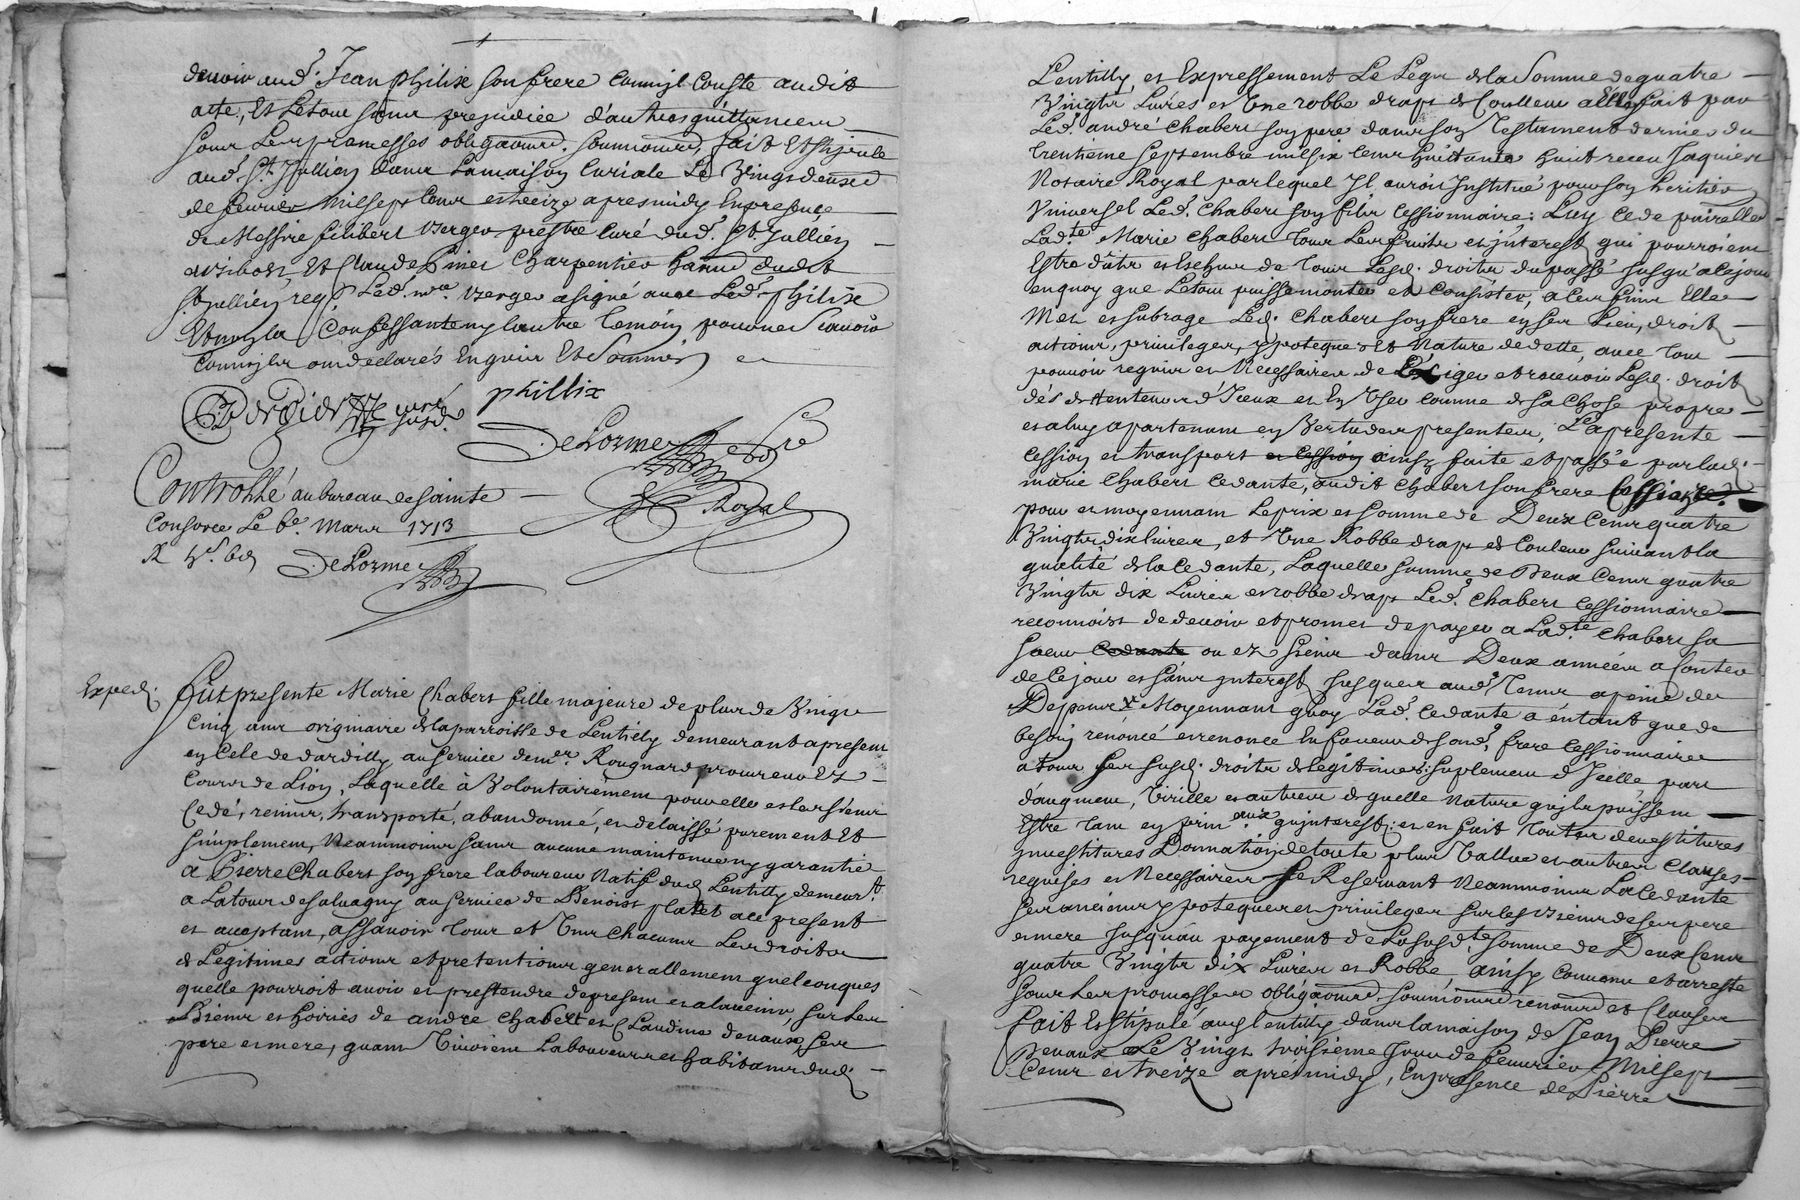 devoir aud. Jean philix son frere comm'il conste audit
acte, Et letout sans prejudice d'autres quittances
sous les promesses obliga͞ons. soumi͞ons, fait Et stipulé
aud. St Jullien dans Lamaison Curiale Le Vingt deuxe
de fevrier Milsept cent et treize apresmidy En presence
de Messire filibert verger prestre curé dud. St. Jullien
et Claude Charpentier dudit
St. Jullien Led. verger a signé avec Led. philix
Et non la Confessante ny lautre temoin pour ne Scavoir
comm'ils ont declarés Enquis Et Sommés
Verdier curé susd. phillix
DeLorme no.re
Royal
Controllé au bureau de sainte
Consorce Le 6e. Mars 1713
R DeLorme
Exped.
Fut presente Marie Chabert fille majeure de plus de Vingt
Cinq ans originaire de la parroisse de Lentilly demeurant apresent
en Cele de dardilly au service de mr. Rougnard procureur Ez
Cours de Lion, Laquelle à Volontairement pour elle et les siens
Cedé, remis, transporté, abandonné, et delaissé purement Et
simplement, Neammoins sans aucune maintenue ny garantie
a Pierre Chabert son frere laboureur Natif dud. Lentilly demeurt.
a Latour desalvagny au service de Benoist platet ace present
et acceptant, assavoir tous et Uns Chacuns Les droits
de Legitimes actions et pretentions generallement quelconques
quelle pourroit avoir et prestendre de present et alavenir, sur les
Biens et hoiries de andre Chabert et Claudine devaux, ses
pere et mere, quant Vivoient Laboureurs et habitants dud.
Lentilly, et Expressement Le Legs de la Somme de quatre
Vingts Livres et Une robbe draps de Coulleur a Elle fait par
Led. andré Chabert son pere dans son Testament dernier du
trentieme septembre mil six cents huittante huit receu Jaquier
Notaire Royal par lequel Il auroit Institué pour son heritier
Universel Led. Chabert son fils Cessionnaire: Luy cede pareillet
Ladte. Marie Chabert tous Les fruits et interest qui pourroient
Estre dûts et Escheus de tous Lesd. droits du passé Jusqu'a ce jour
en quoy que Letout puisse monter et Consister, a ces fins Elle
Met et subroge Led. Chabert son frere en ses Lieu, droit
actions, privileges, ypoteques et Nature de dette, avec tout
pouvoir requis et Necessaire de L'exiger et recevoir Lesd. droit
des detenteurs d'Iceux et En User comme de sa Chose propre
et a luy apartenant en Vertu des presentes, La presente
cession et transport et cession ainsy faite et passée par lad.
marie Chabert cedante, audit Chabert son frere Cessionre.
pour et moyennant Le prix et somme de Deux Cens quatre
Vingts dix livres, et Une Robbe draps de Couleur suivant la
qualité de la Cedante, Laquelle somme de Deux Cens quatre
Vingts dix Livres et robbe draps Led. Chabert cessionnaire
reconnoist de devoir et promet de payer a Ladte. Chabert sa
soeur cedante ou ez siens dans Deux années a Conter
de ce jour et sans interest Jusques aud. terme apeine des
Despens Moyennant quoy Lad. Cedante a entant que de
besoin renoncé et renonce En faveur de sond. frere Cessionnaire
a tous ses susd. droits de legitimes: suplement d'Icelle, part
daugment, Virille et autres de quelle nature quils puissent
Estre tant en prinaux qu'interest; et en fait toutes devestitures
investitures Donnation de toute plus Vallue et autres Clauses
requises et Necessaires se Reservant Neammoins La Cedante
ses anciens ypoteques et privileges sur les Biens de ses pere
et mere Jusquau payement de La susdte. somme de Deux Cens
quatre Vingts dix Livres et Robbe, ainsy convenu et arresté
sous Les promesses obliga͞ons, soumi͞ons renon͞ons et Clauses
fait Et stipulé aud. Lentilly dans la maison de Jean Pierre
Devaux Le Vingt troisieme Jour de fevrier Milsept
Cens et treize apresmidy, En presence de Pierre